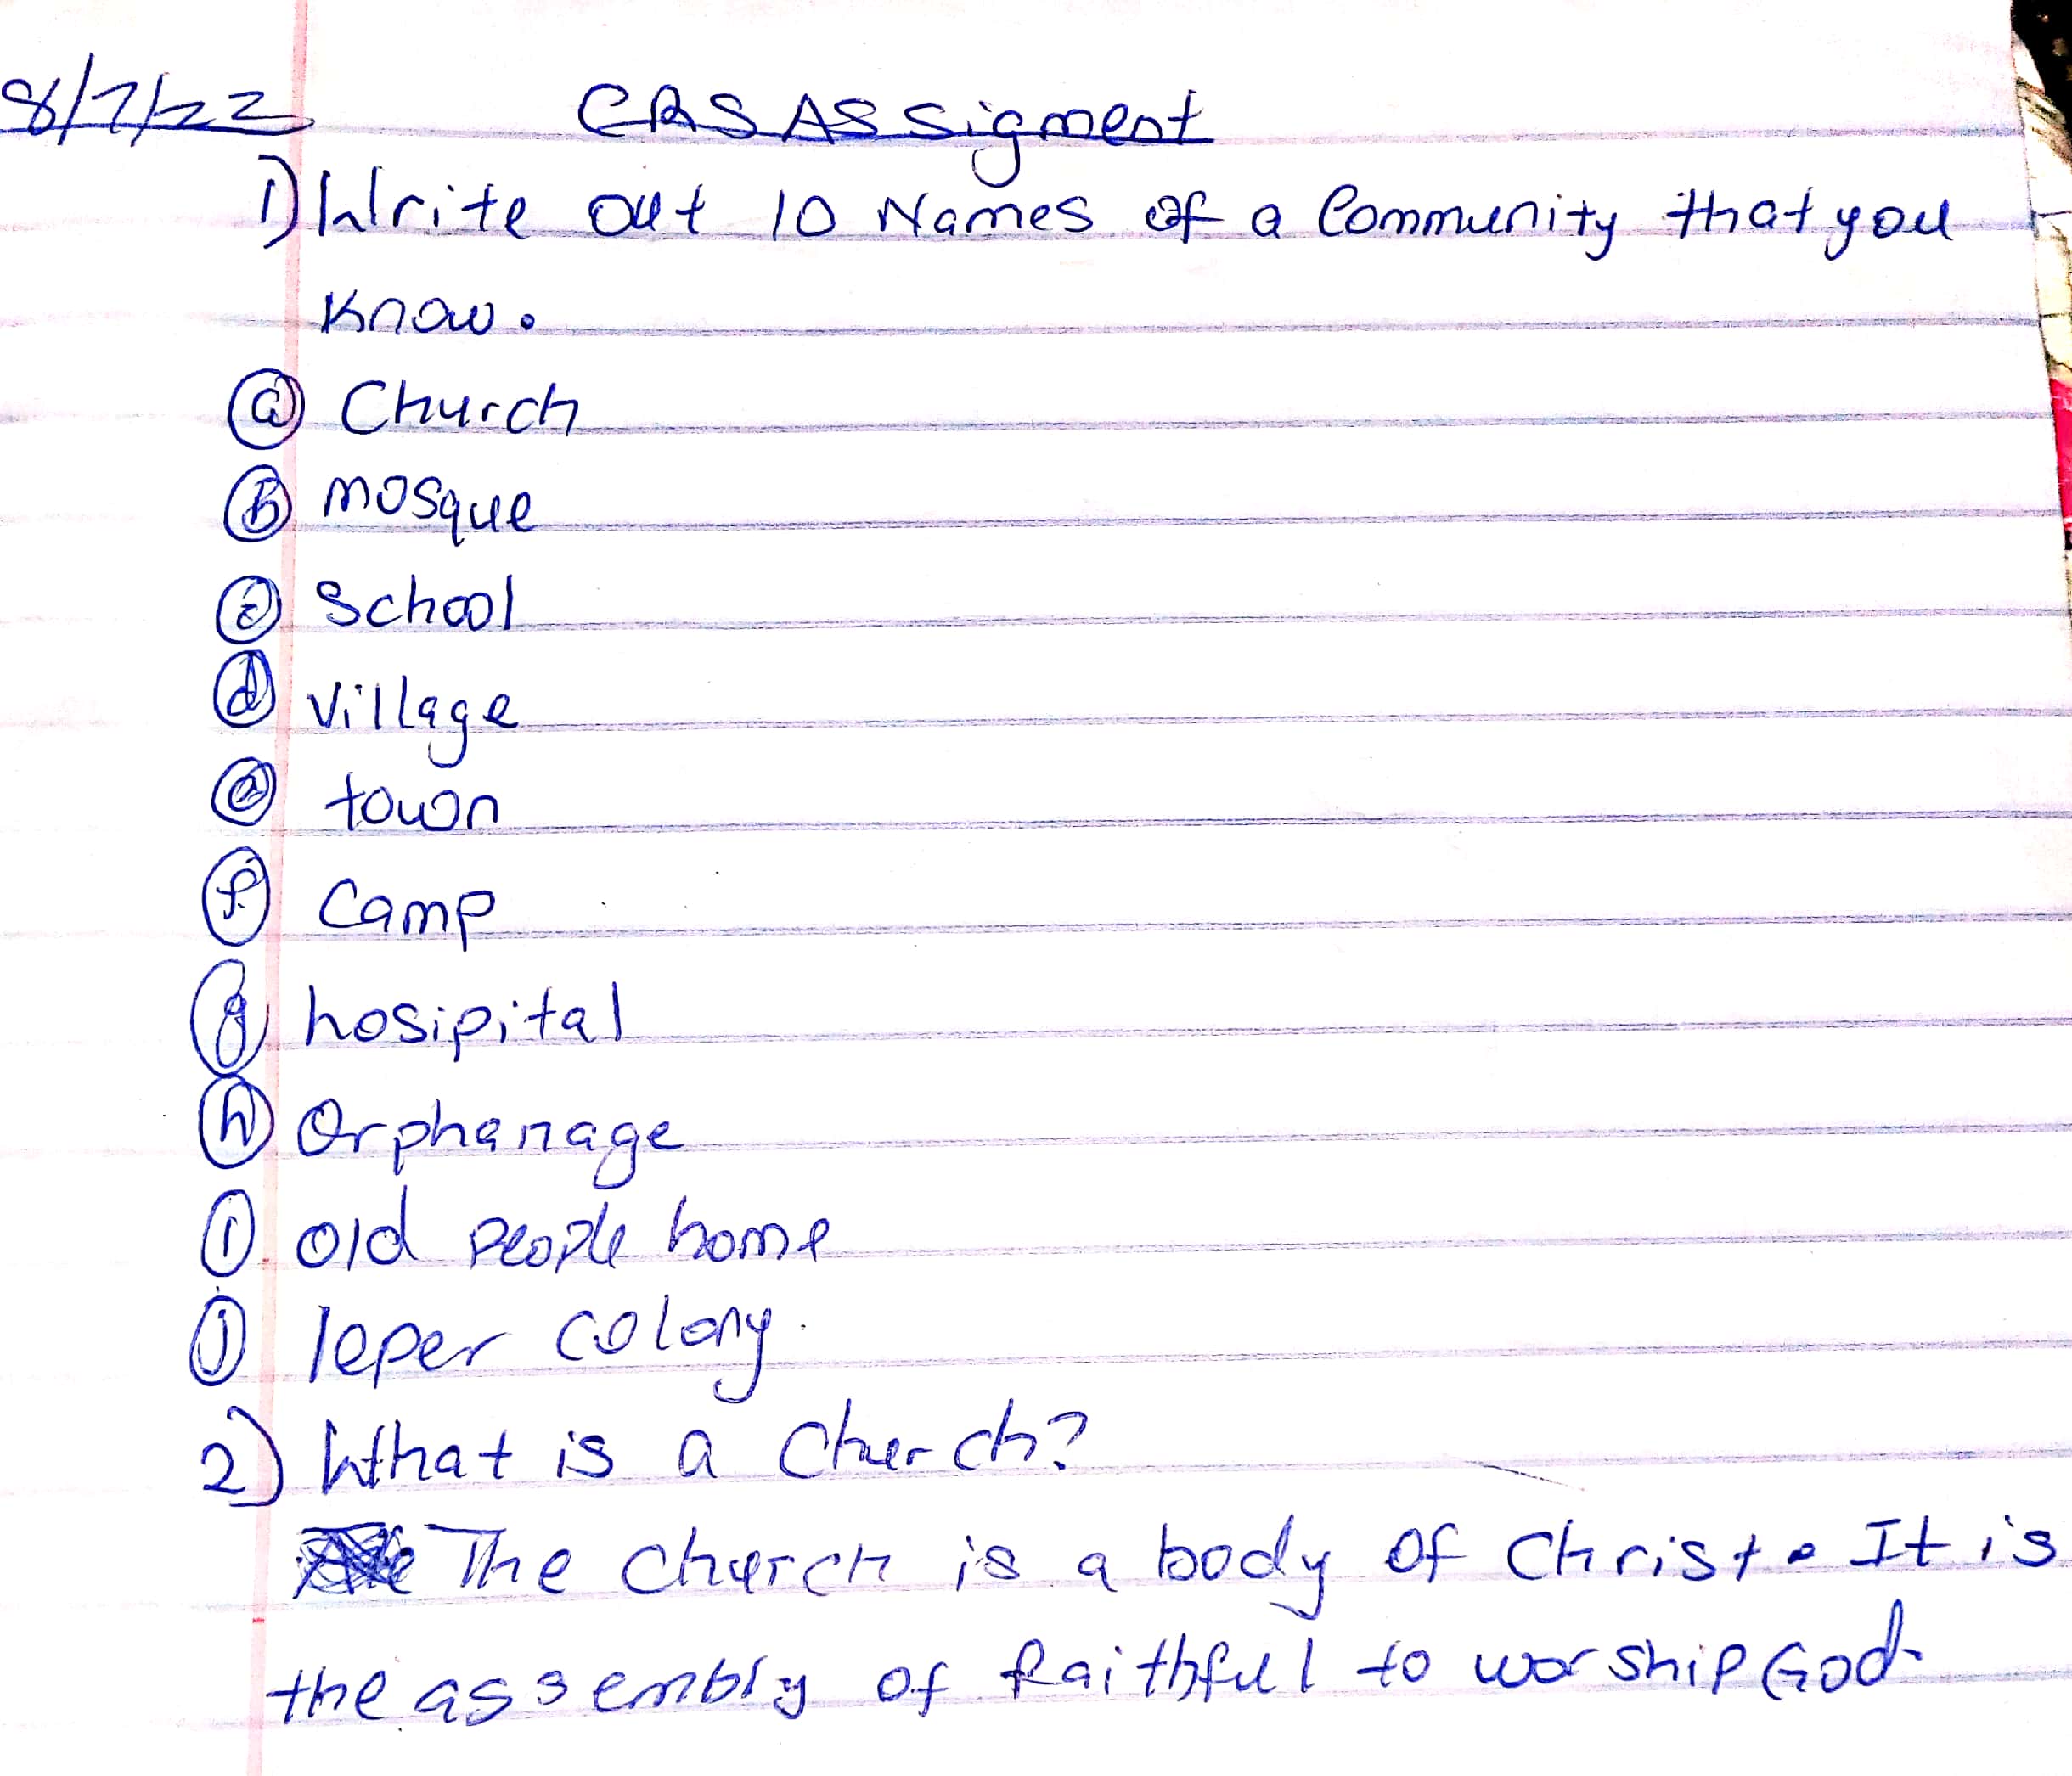 8/7/22 CRS Assigment
1) Write out 10 Names of a Community that you
know.
a Church
b mosque
c school
d village
e town
f Camp
g hosipital
h Orphanage
i old people home
j leper colony.
2) What is a Church?
The church is a body of Christ. It is
the assembly of faithful to worship God